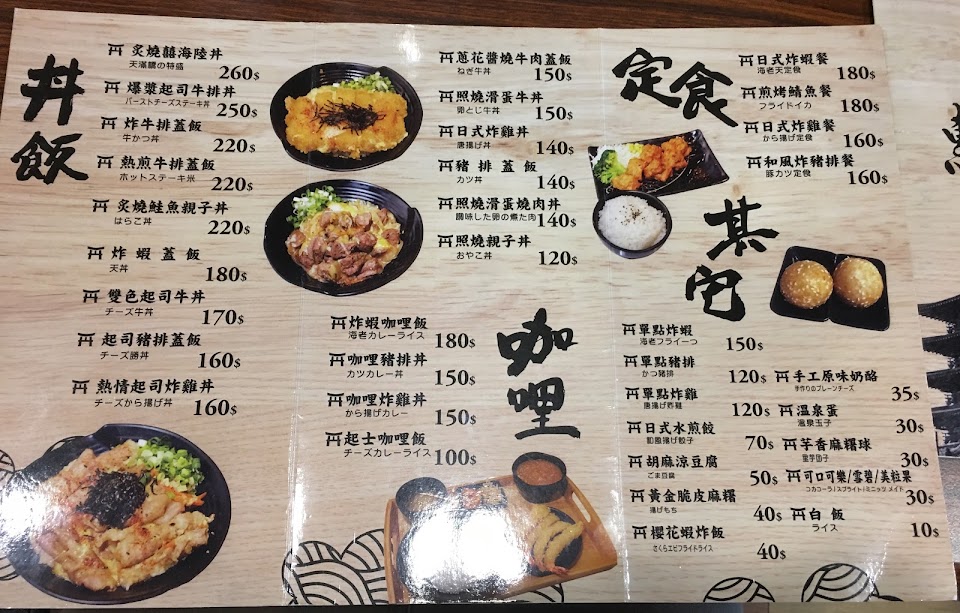 丼飯
炙燒囍海陸丼
天滿牘の特盛
260$
爆漿起司牛排丼
バーストチーズステーキ丼
250$
炸牛排蓋飯
牛かつ丼
220$
熱煎牛排蓋飯
ホットステーキ米
220$
炙燒鮭魚親子丼
はらこ丼
220$
炸蝦蓋飯
天丼
180$
雙色起司牛丼
チーズ牛丼
170$
起司豬排蓋飯
チーズ勝丼
160$
熱情起司炸雞丼
チーズから揚げ丼
160$
蔥花醬燒牛肉蓋飯
ねぎ牛丼
150$
照燒滑蛋牛丼
卵とじ牛丼
150$
日式炸雞丼
唐揚げ丼
140$
豬排蓋飯
カツ丼
140$
照燒滑蛋燒肉丼
調味した卵の煮た肉
140$
照燒親子丼
おやこ丼
120$
咖哩
炸蝦咖哩飯
海老カレーライス
180$
咖哩豬排丼
カツカレー丼
150$
咖哩炸雞丼
から揚げカレー
150$
起士咖哩飯
チーズカレーライス
100$
定食
日式炸蝦餐
海老天定食
180$
煎烤鯖魚餐
フライドイカ
180$
日式炸雞餐
から揚げ定食
160$
和風炸豬排餐
豚カツ定食
160$
其它
單點炸蝦
海老フライ一つ
150$
單點豬排
かつ豬排
120$
單點炸雞
唐揚げ炸雞
120$
日式水煎餃
和風揚げ餃子
70$
胡麻涼豆腐
ごま豆腐
50$
黃金脆皮麻糬
揚げもち
40$
櫻花蝦炸飯
さくらエビフライドライス
40$
手工原味奶酪
手作りのプレーンチーズ
35$
溫泉蛋
温泉玉子
30$
芋香麻糬球
里芋団子
30$
可口可樂/雪碧/美粒果
コカコーラ/スプライト/ミニッツ メイド
30$
白飯
ライス
10$